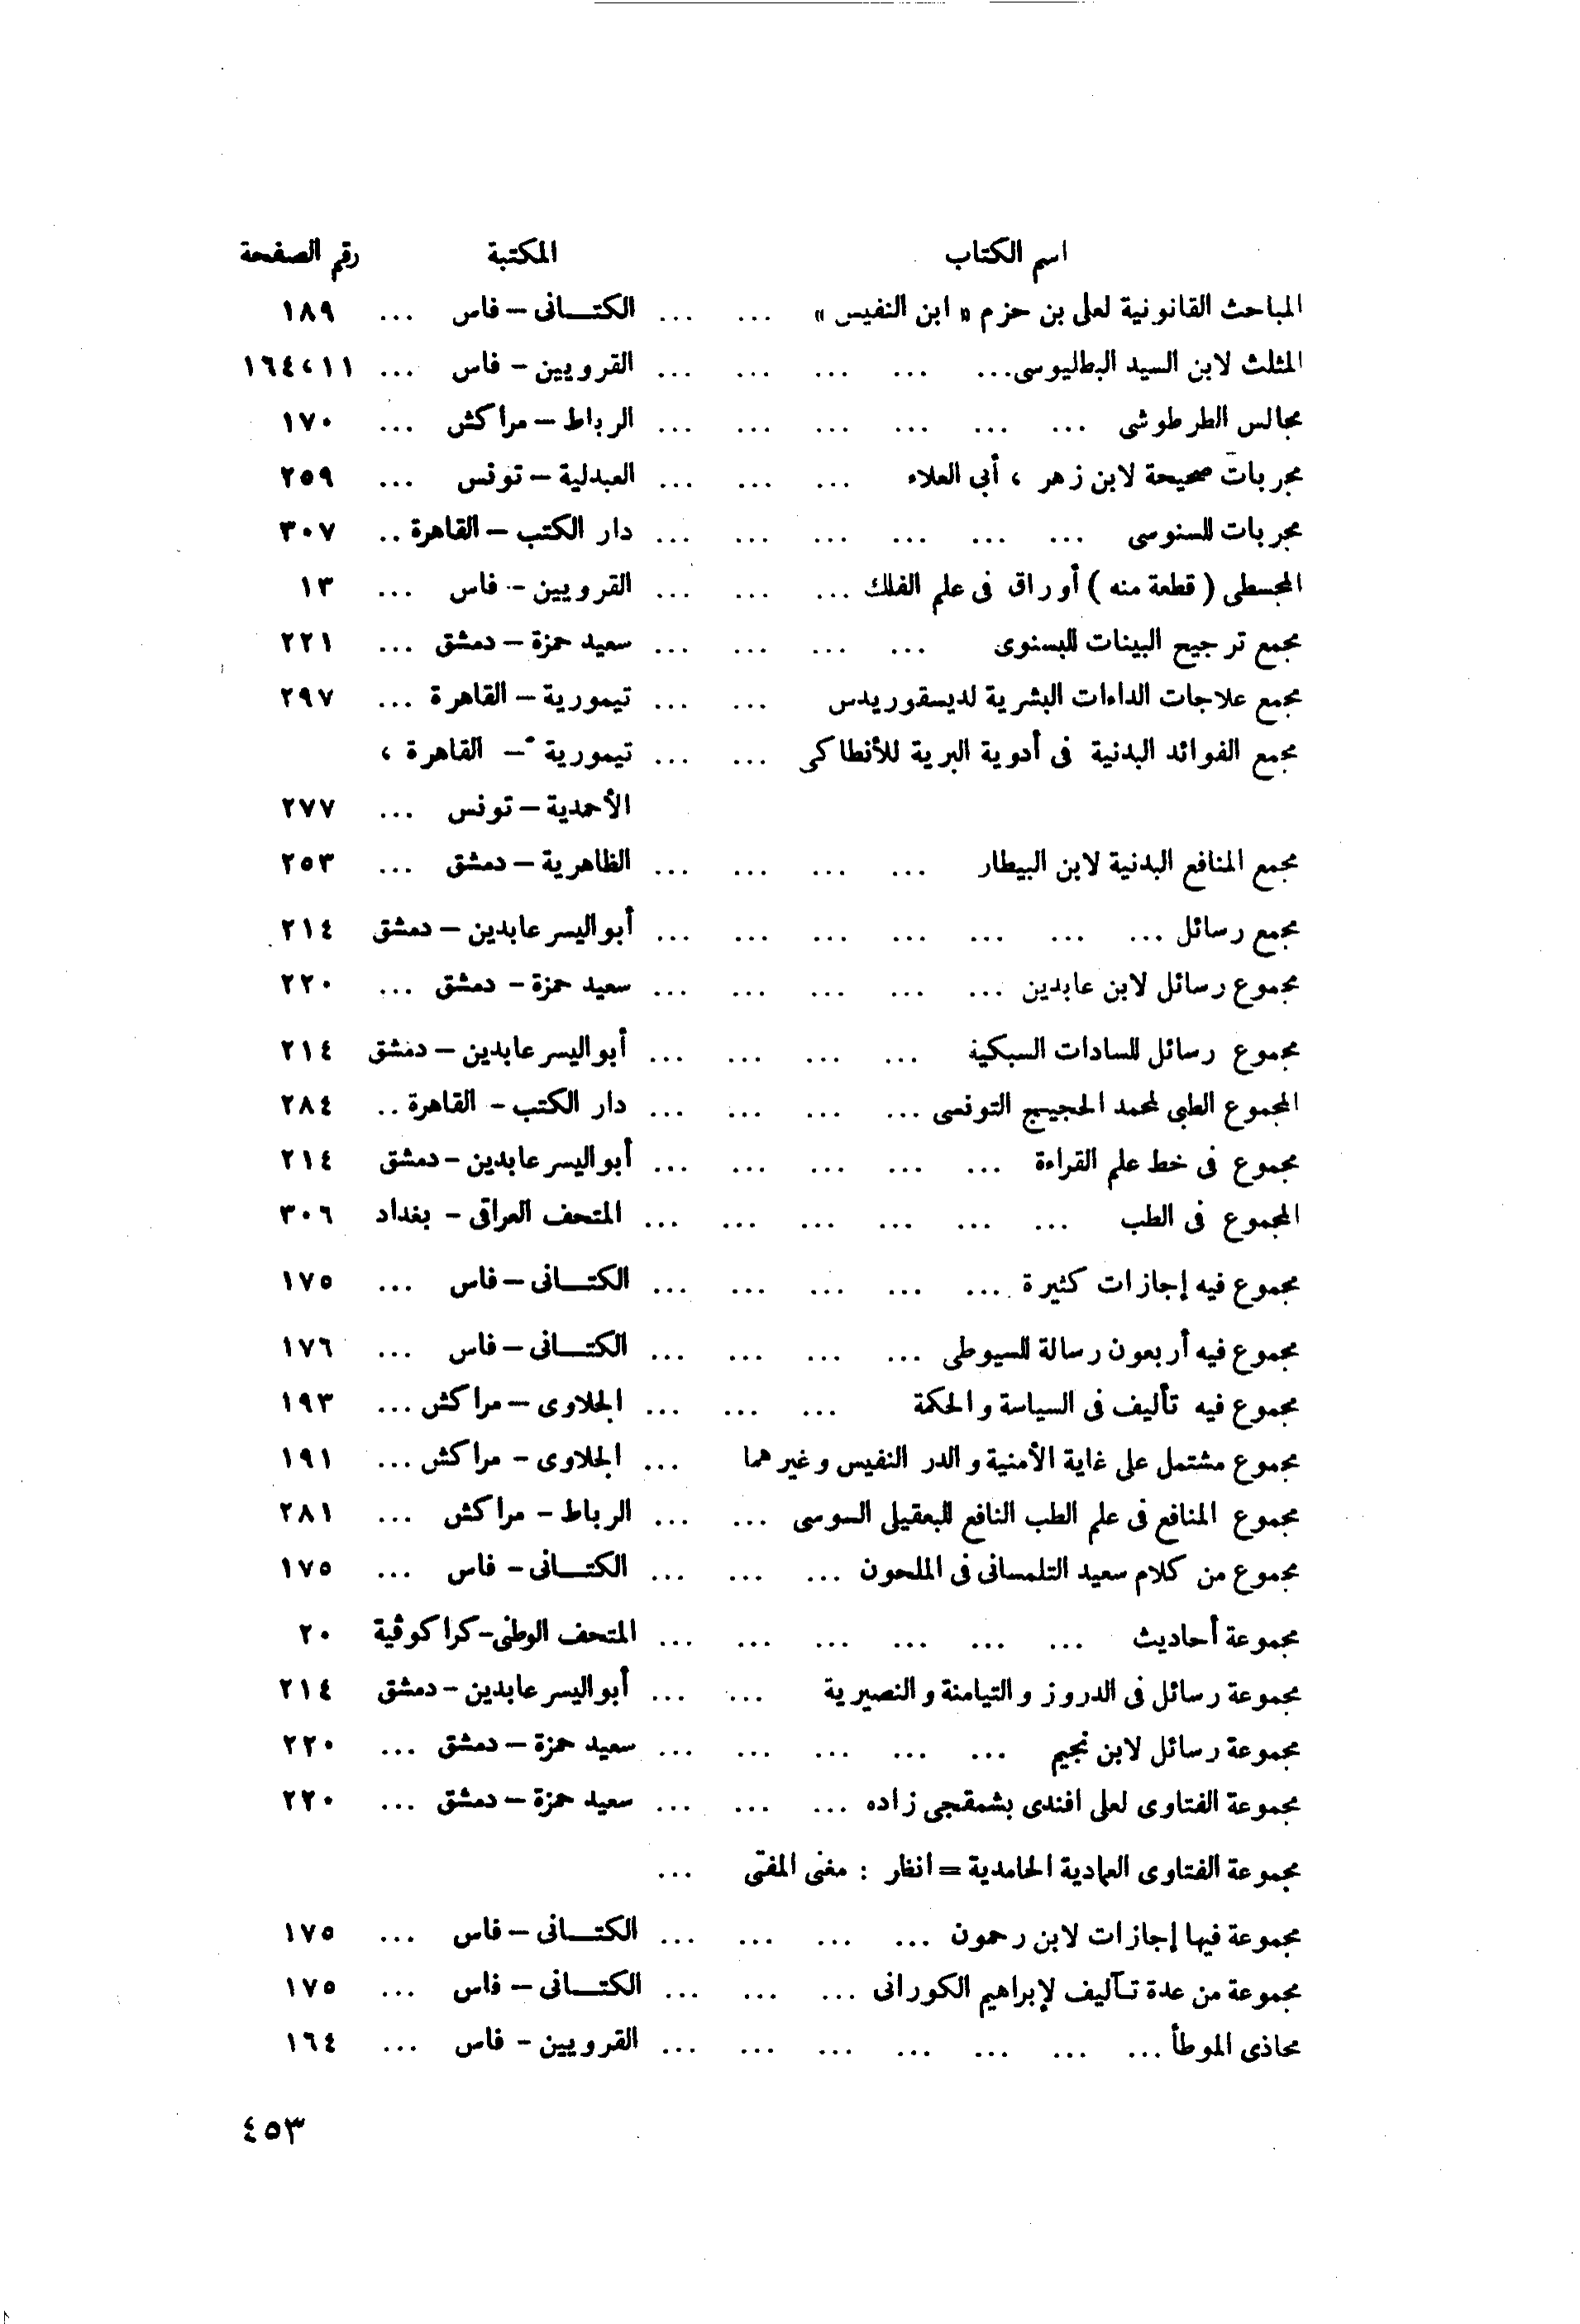 اسم الكتاب المكتبة رقم الصفحة
المباحث القانونية لعلى بن حزم « ابن النفيس » ... ... الكتانى – فاس ... ١٨٩
المثلث لابن السيد البطليوسى ... ... ... ... ... القرويين – فاس ... ١١ ، ١٦٤
مجالس الطرطوشى ... ... ... ... ... ... الرباط – مراكش ... ١٧٠
مجربات صحيحة لابن زهر ، أبى العلاء ... ... ... العبدلية – تونس ... ٢٥٩
مجربات للسنوسى ... ... ... ... ... ... دار الكتب – القاهرة .. ٣٠٧
المجسطى ( قطعة منه ) أوراق فى علم الفلك ... ... ... القرويين – فاس ... ١٣
مجمع ترجيح البينات للبسنوى ... ... ... ... سعيد حمزة – دمشق ... ٢٢١
مجمع علاجات الداءات البشرية لديسقوريدس ... ... تيمورية – القاهرة ... ٢٩٧
مجمع الفوائد البدنية فى أدوية البرية للأنطاكى ... ... تيمورية – القاهرة ،
الأحمدية – تونس ... ٢٧٧
مجمع المنافع البدنية لابن البيطار ... ... ... ... الظاهرية – دمشق ... ٢٥٣
مجمع رسائل ... ... ... ... ... ... ... أبو اليسر عابدين – دمشق ٢١٤
مجموع رسائل لابن عابدين ... ... ... ... ... سعيد حمزة – دمشق ... ٢٢٠
مجموع رسائل للسادات السبكية ... ... ... ... أبو اليسر عابدين – دمشق ٢١٤
المجموع الطبى لمحمد الحجيج التونسى ... ... ... ... دار الكتب – القاهرة .. ٢٨٤
مجموع فى خط علم القراءة ... ... ... ... ... أبو اليسر عابدين – دمشق ٢١٤
المجموع فى الطب ... ... ... ... ... ... المتحف العراقى – بغداد ٣٠٦
مجموع فيه إجازات كثيرة ... ... ... ... ... الكتانى – فاس ... ١٧٥
مجموع فيه أربعون رسالة للسيوطى ... ... ... ... الكتانى – فاس ... ١٧٦
مجموع فيه تأليف فى السياسة والحكمة ... ... ... الجلاوى – مراكش ... ١٩٣
مجموع مشتمل على غاية الأمنية والدر النفيس وغيرهما ... الجلاوى – مراكش ... ١٩١
مجموع المنافع فى علم الطب النافع للبعقيلى السوسى ... ... الرباط – مراكش ... ٢٨١
مجموع من كلام سعيد التلمسانى فى الملحون ... ... ... الكتانى – فاس ... ١٧٥
مجموعة أحاديث ... ... ... ... ... ... المتحف الوطنى – كراكوڤية ٢٠
مجموعة رسائل فى الدروز والتيامنة والنصيرية ... ... أبو اليسر عابدين – دمشق ٢١٤
مجموعة رسائل لابن نجيم ... ... ... ... ... سعيد حمزة – دمشق ... ٢٢٠
مجموعة الفتاوى لعلى افندى بشمقجى زاده ... ... ... سعيد حمزة – دمشق ... ٢٢٠
مجموعة الفتاوى العمادية الحامدية = انظر : مغنى المفتى ...
مجموعة فيها إجازات لابن رحمون ... ... ... ... الكتانى – فاس ... ١٧٥
مجموعة من عدة تآليف لإبراهيم الكورانى ... ... ... الكتانى – فاس ... ١٧٥
محاذى الموطأ ... ... ... ... ... ... ... القرويين – فاس ... ١٦٤
٤٥٣